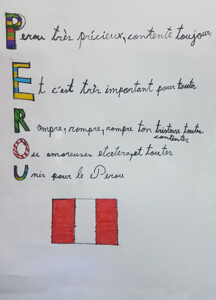 Perou très précieux, contente toujour
Et c'est très important pour toute
Rompre, rompre, rompre ton tristesse toutes
contentes
Ou amoureuses etcetera, et toutes
Unis pour le Perou